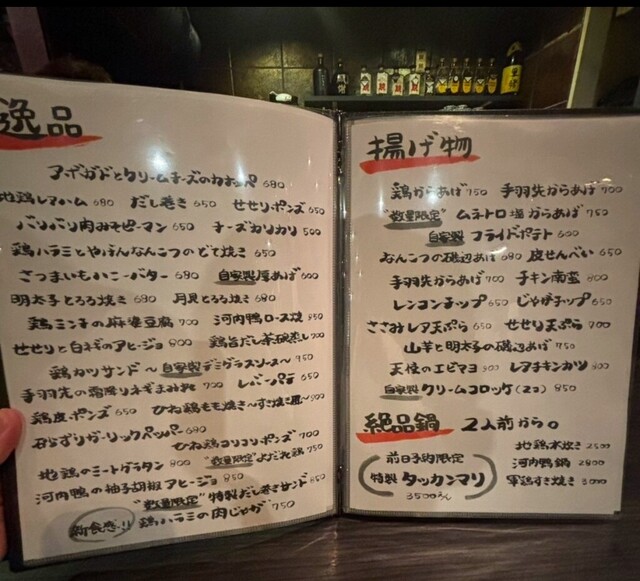 逸品
アボガドとクリームチーズのカナッペ 680
地鶏レアハム 680 だし巻き 650 せせりポンズ 650
バリバリ肉みそピーマン 650 チーズカリカリ 500
鶏ハラミとやげんなんこつのどて焼き 650
さつまいもハニーバター 680 自家製厚あげ 600
明太子とろろ焼き 680 月見とろろ焼き 680
鶏ミンチの麻婆豆腐 700 河内鴨ロース焼 950
せせりと白ネギのアヒージョ 800 鶏旨だし茶碗蒸し 700
鶏カツサンド 〜自家製デミグラスソース〜 950
手羽先の霜降りネギまみれ 700 レバーパテ 650
鶏皮ポンズ 650 ひね鶏もも焼き〜すき焼き風〜 900
砂ずりガーリックペッパー 680
ひね鶏コリコリポンズ 700
地鶏のミートグラタン 800 "数量限定"よだれ鶏 750
河内鴨の柚子胡椒アヒージョ 850
"数量限定"特製だし巻きサンド 850
新食感!! 鶏ハラミの肉じゃが 750
揚げ物
鶏からあげ 750 手羽先からあげ 700
"数量限定" ムネトロ塩からあげ 750
自家製 フライドポテト 600
なんこつの磯辺あげ 680 皮せんべい 650
手羽先からあげ 700 チキン南蛮 800
レンコンチップ 650 じゃがチップ 650
ささみレア天ぷら 650 せせり天ぷら 700
山芋と明太子の磯辺あげ 750
天使のエビマヨ 900 レアチキンカツ 800
自家製 クリームコロッケ(2コ) 850
絶品鍋 2人前から。
前日予約限定
特製 タッカンマリ
3500えん
地鶏水炊き 2500
河内鴨鍋 2800
軍鶏すき焼き 3000